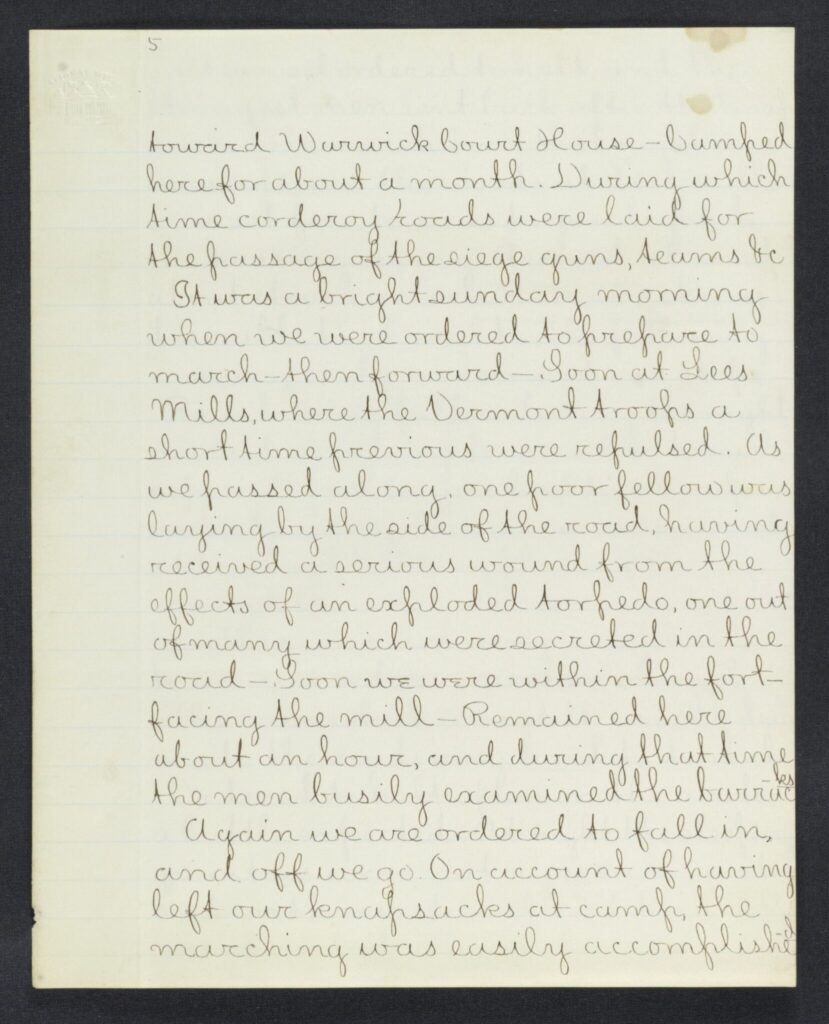 5
toward Warwick Court House – Camped
here for about a month. During which
time corderoy roads were laid for
the passage of the siege guns, teams &c
It was a bright sunday morning
when we were ordered to prepare to
march – then forward – Soon at Lees
Mills, where the Vermont troops a
short time previous were repulsed. As
we passed along, one poor fellow was
laying by the side of the road, having
received a serious wound from the
effects of an exploded torpedo, one out
of many which were secreted in the
road – Soon we were within the fort –
facing the mill – Remained here
about an hour, and during that time
the men busily examined the barracks
Again we are ordered to fall in,
and off we go. On account of having
left our knapsacks at camp, the
marching was easily accomplished